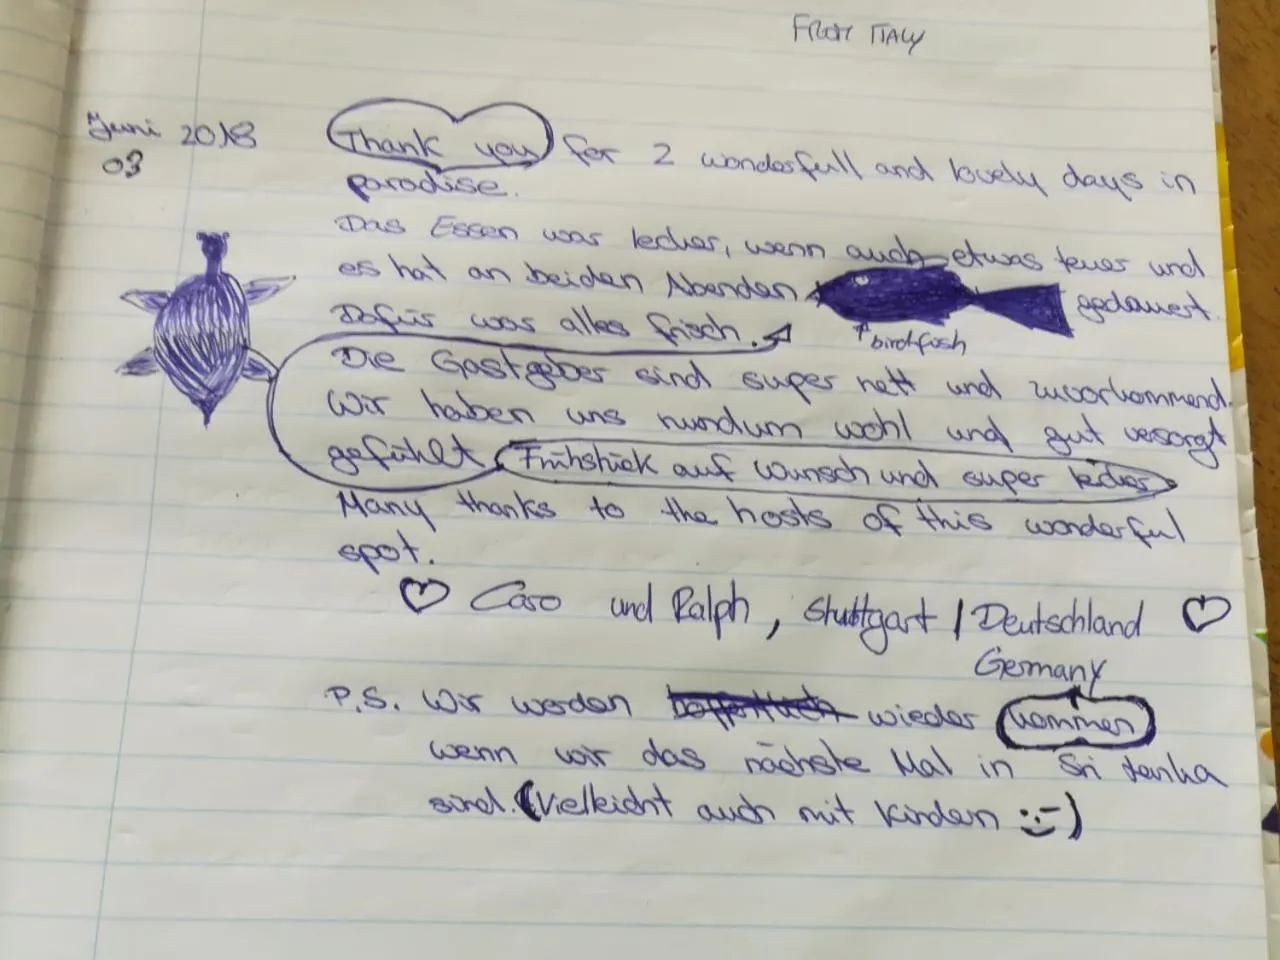 FROM ITALY
Juni 2018
03
Thank you for 2 wonderfull and lovely days in
paradise.
Das Essen war lecker, wenn auch etwas teuer und
es hat an beiden Abenden gedauert.
birdfish
Dafür war alles frisch.
Die Gastgeber sind super nett und zuvorkommend.
Wir haben uns rundum wohl und gut versorgt
gefühlt. Frühstück auf Wunsch und super lecker
Many thanks to the hosts of this wonderful
spot.
Caro und Ralph, Stuttgart / Deutschland
Germany
P.S. Wir werden hoffentlich wieder kommen
wenn wir das nächste Mal in Sri Lanka
sind. (Vielleicht auch mit Kindern :-)